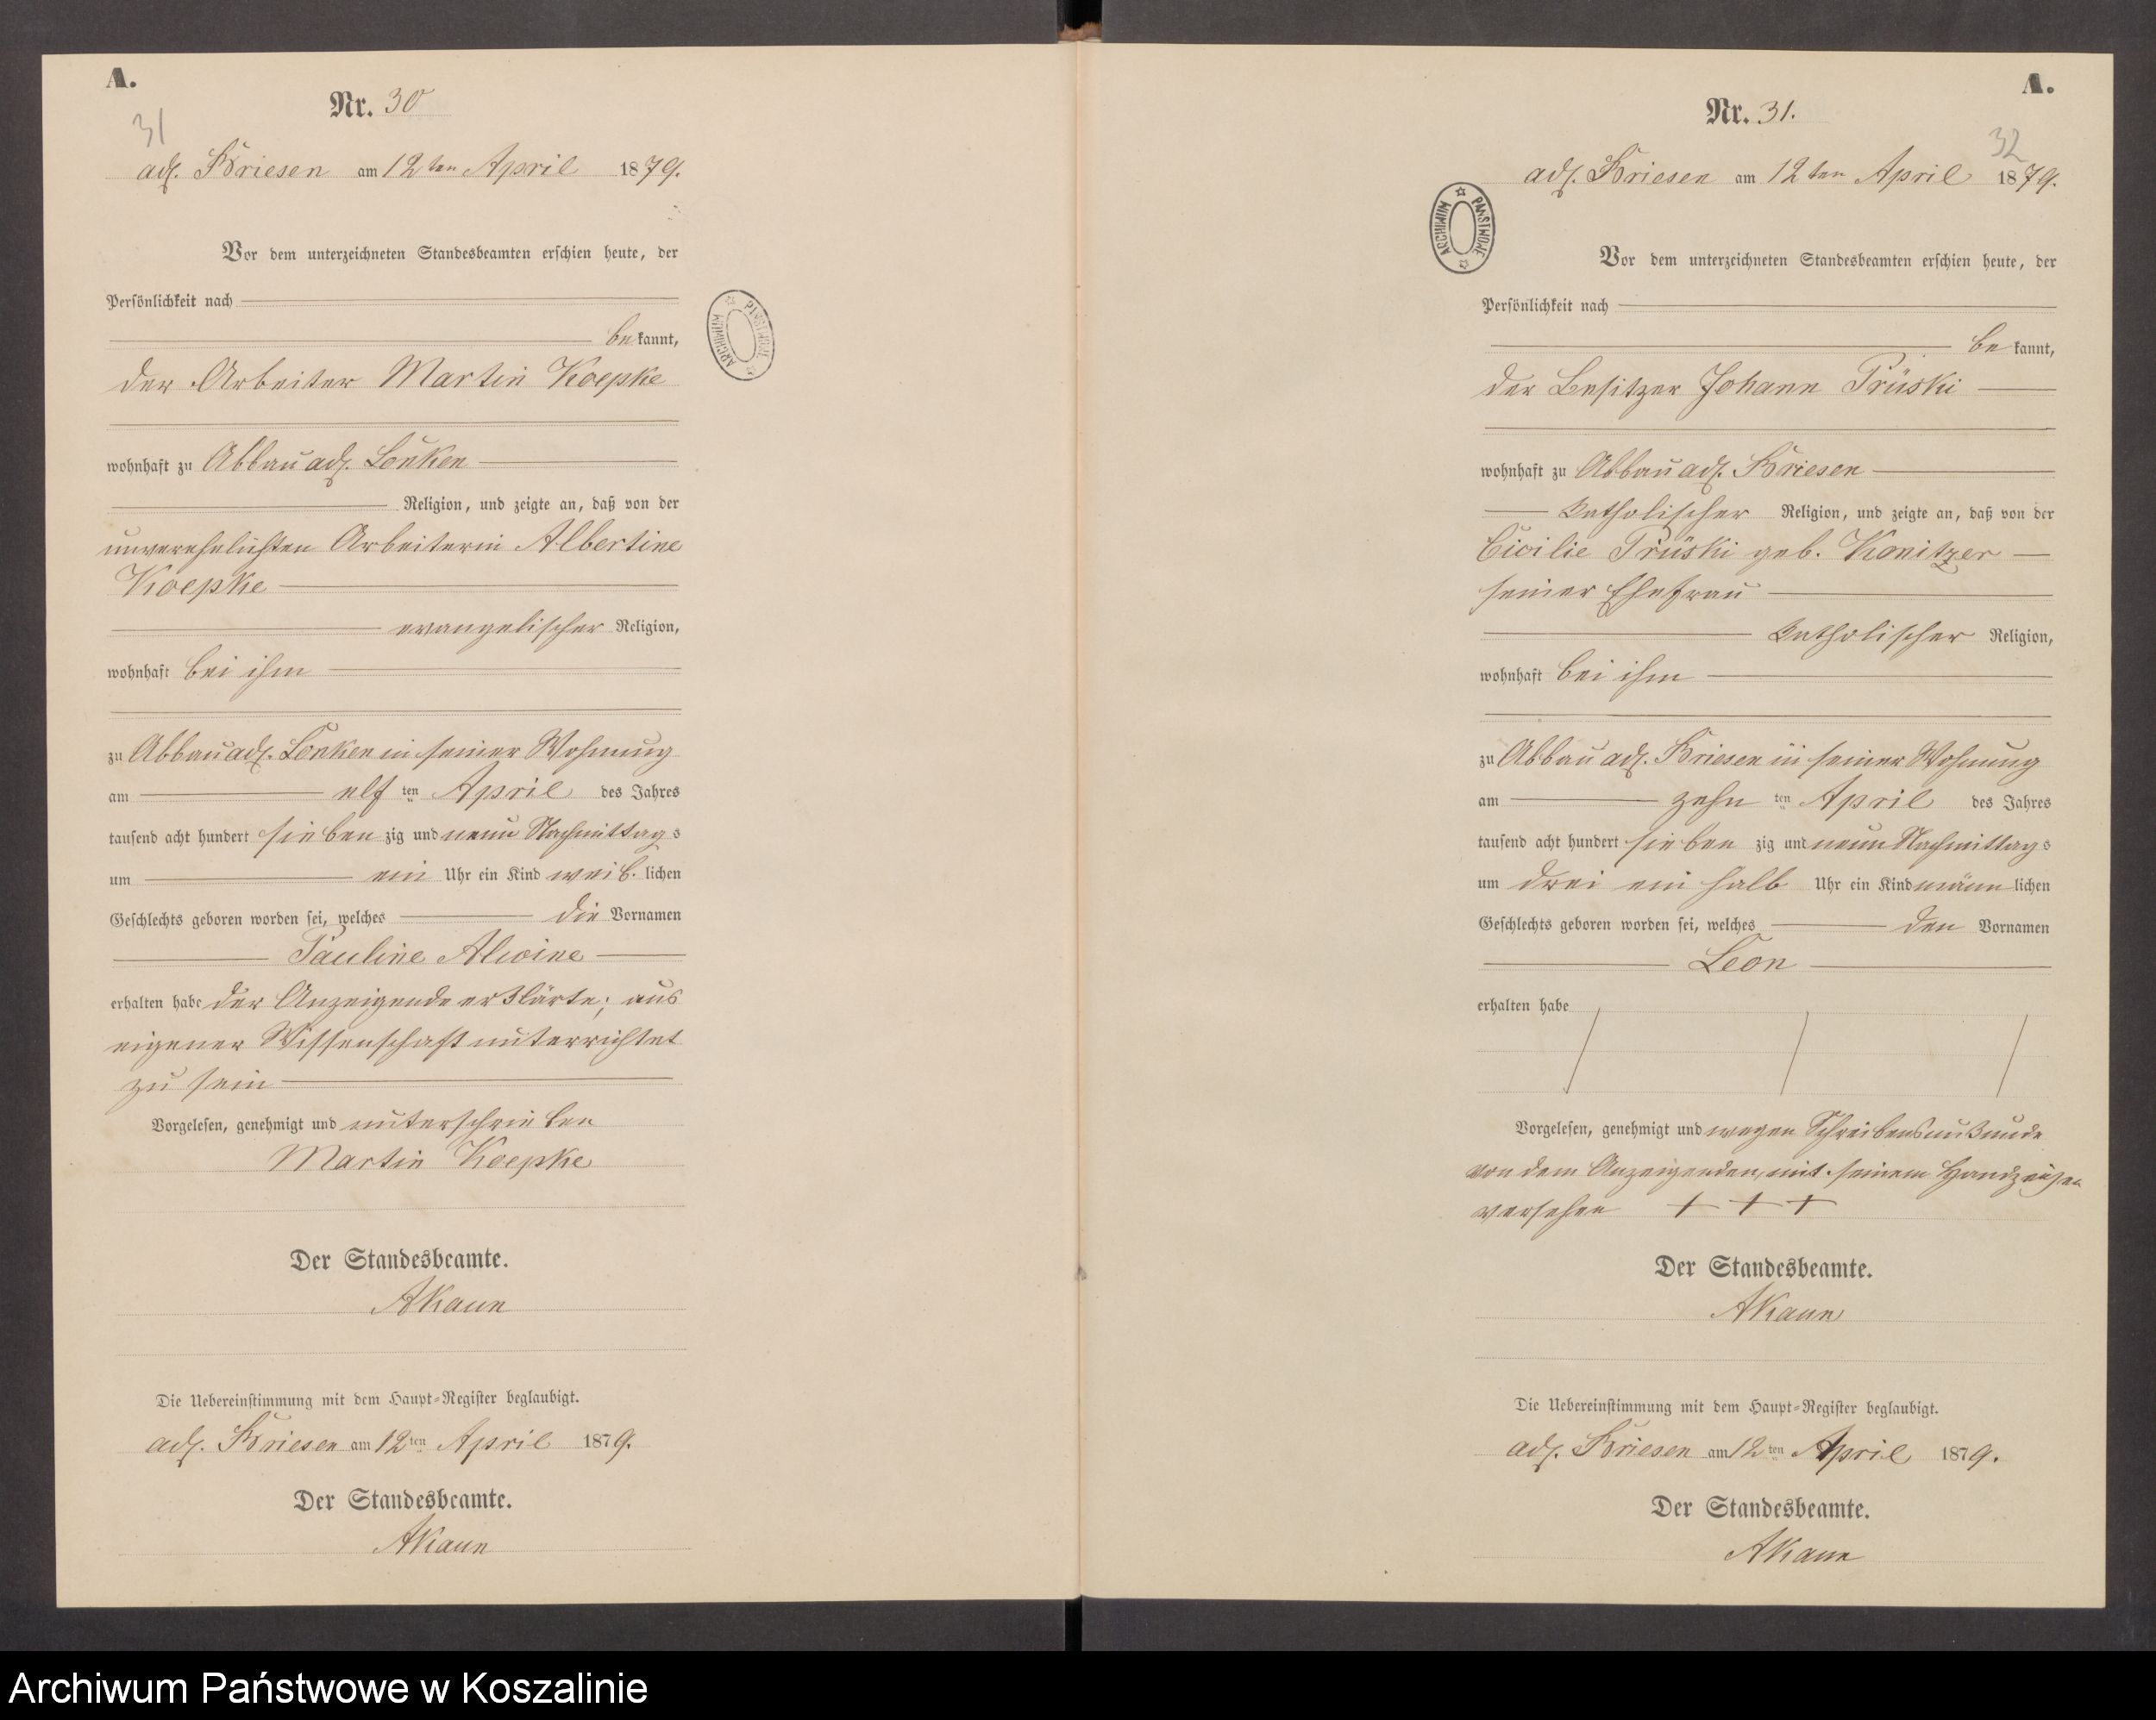 A.
Nr. 30
31
adl. Briesen am 12ten April 1879.
Vor dem unterzeichneten Standesbeamten erschien heute, der
Persönlichkeit nach
bekannt,
der Arbeiter Martin Koepke
wohnhaft zu Abbau adl. Lonken
Religion, und zeigte an, daß von der
unverehelichten Arbeiterin Albertine
Koepke
evangelischer Religion,
wohnhaft bei ihm
zu Abbau adl. Lonken in seiner Wohnung
am elf ten April des Jahres
tausend acht hundert sieben zig und neun Nachmittags
um ein Uhr ein Kind weib. lichen
Geschlechts geboren worden sei, welches die Vornamen
Pauline Alwine
erhalten habe der Anzeigende erklärte; aus
eigener Wissenschaft unterrichtet
zu sein
Vorgelesen, genehmigt und unterschrieben
Martin Koepke
Der Standesbeamte.
AKaun
Die Uebereinstimmung mit dem Haupt-Register beglaubigt.
adl. Briesen am 12ten April 1879.
Der Standesbeamte.
AKaun
ARCHIWUM PAŃSTWOWE
A.
Nr. 31.
32
adl. Briesen am 12ten April 1879.
ARCHIWUM PAŃSTWOWE
Vor dem unterzeichneten Standesbeamten erschien heute, der
Persönlichkeit nach
bekannt,
der Besitzer Johann Prüski
wohnhaft zu Abbau adl. Briesen
katholischer Religion, und zeigte an, daß von der
Cicilie Prüski geb. Konitzer
seiner Ehefrau
katholischer Religion,
wohnhaft bei ihm
zu Abbau adl. Briesen in seiner Wohnung
am zehn ten April des Jahres
tausend acht hundert sieben zig und neun Nachmittags
um drei ein halb Uhr ein Kind männ lichen
Geschlechts geboren worden sei, welches den Vornamen
Leon
erhalten habe
Vorgelesen, genehmigt und wegen Schreibensunkunde
von dem Anzeigenden, mit seinem Handzeichen
versehen + + +
Der Standesbeamte.
AKaun
Die Uebereinstimmung mit dem Haupt-Register beglaubigt.
adl. Briesen am 12ten April 1879.
Der Standesbeamte.
AKaun
Archiwum Państwowe w Koszalinie